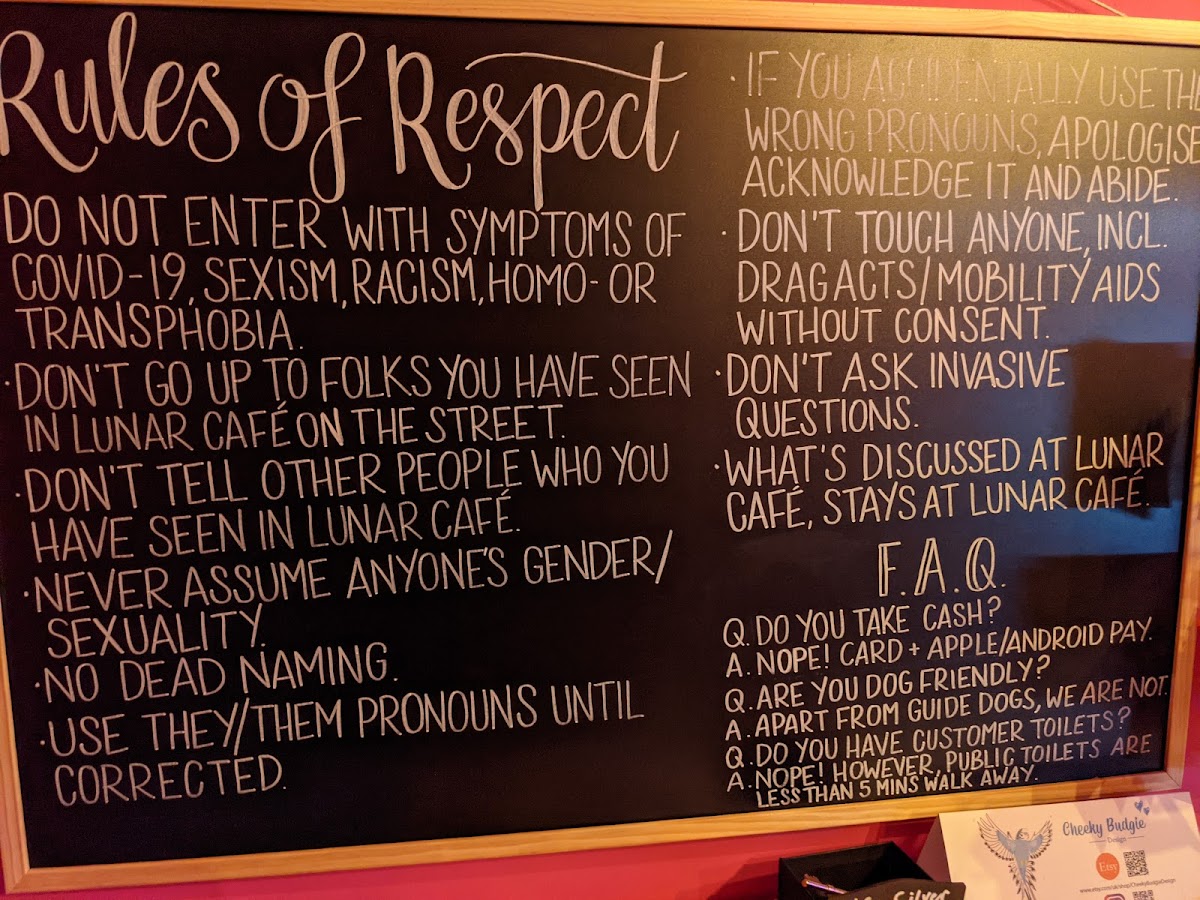 Rules of Respect
DO NOT ENTER WITH SYMPTOMS OF
COVID-19, SEXISM, RACISM, HOMO- OR
TRANSPHOBIA.
·DON'T GO UP TO FOLKS YOU HAVE SEEN
IN LUNAR CAFÉ ON THE STREET.
·DON'T TELL OTHER PEOPLE WHO YOU
HAVE SEEN IN LUNAR CAFÉ.
·NEVER ASSUME ANYONE'S GENDER/
SEXUALITY.
·NO DEAD NAMING.
·USE THEY/THEM PRONOUNS UNTIL
CORRECTED.
·IF YOU ACCIDENTALLY USE TH
WRONG PRONOUNS, APOLOGISE
ACKNOWLEDGE IT AND ABIDE.
·DON'T TOUCH ANYONE, INCL.
DRAG ACTS/MOBILITY AIDS
WITHOUT CONSENT.
·DON'T ASK INVASIVE
QUESTIONS.
·WHAT'S DISCUSSED AT LUNAR
CAFÉ, STAYS AT LUNAR CAFÉ.
F.A.Q.
Q. DO YOU TAKE CASH?
A. NOPE! CARD + APPLE/ANDROID PAY.
Q. ARE YOU DOG FRIENDLY?
A. APART FROM GUIDE DOGS, WE ARE NOT.
Q. DO YOU HAVE CUSTOMER TOILETS?
A. NOPE! HOWEVER, PUBLIC TOILETS ARE
LESS THAN 5 MINS WALK AWAY.
Cheeky Budgie
Design
Etsy
www.etsy.com/uk/shop/CheekyBudgieDesign
Silver